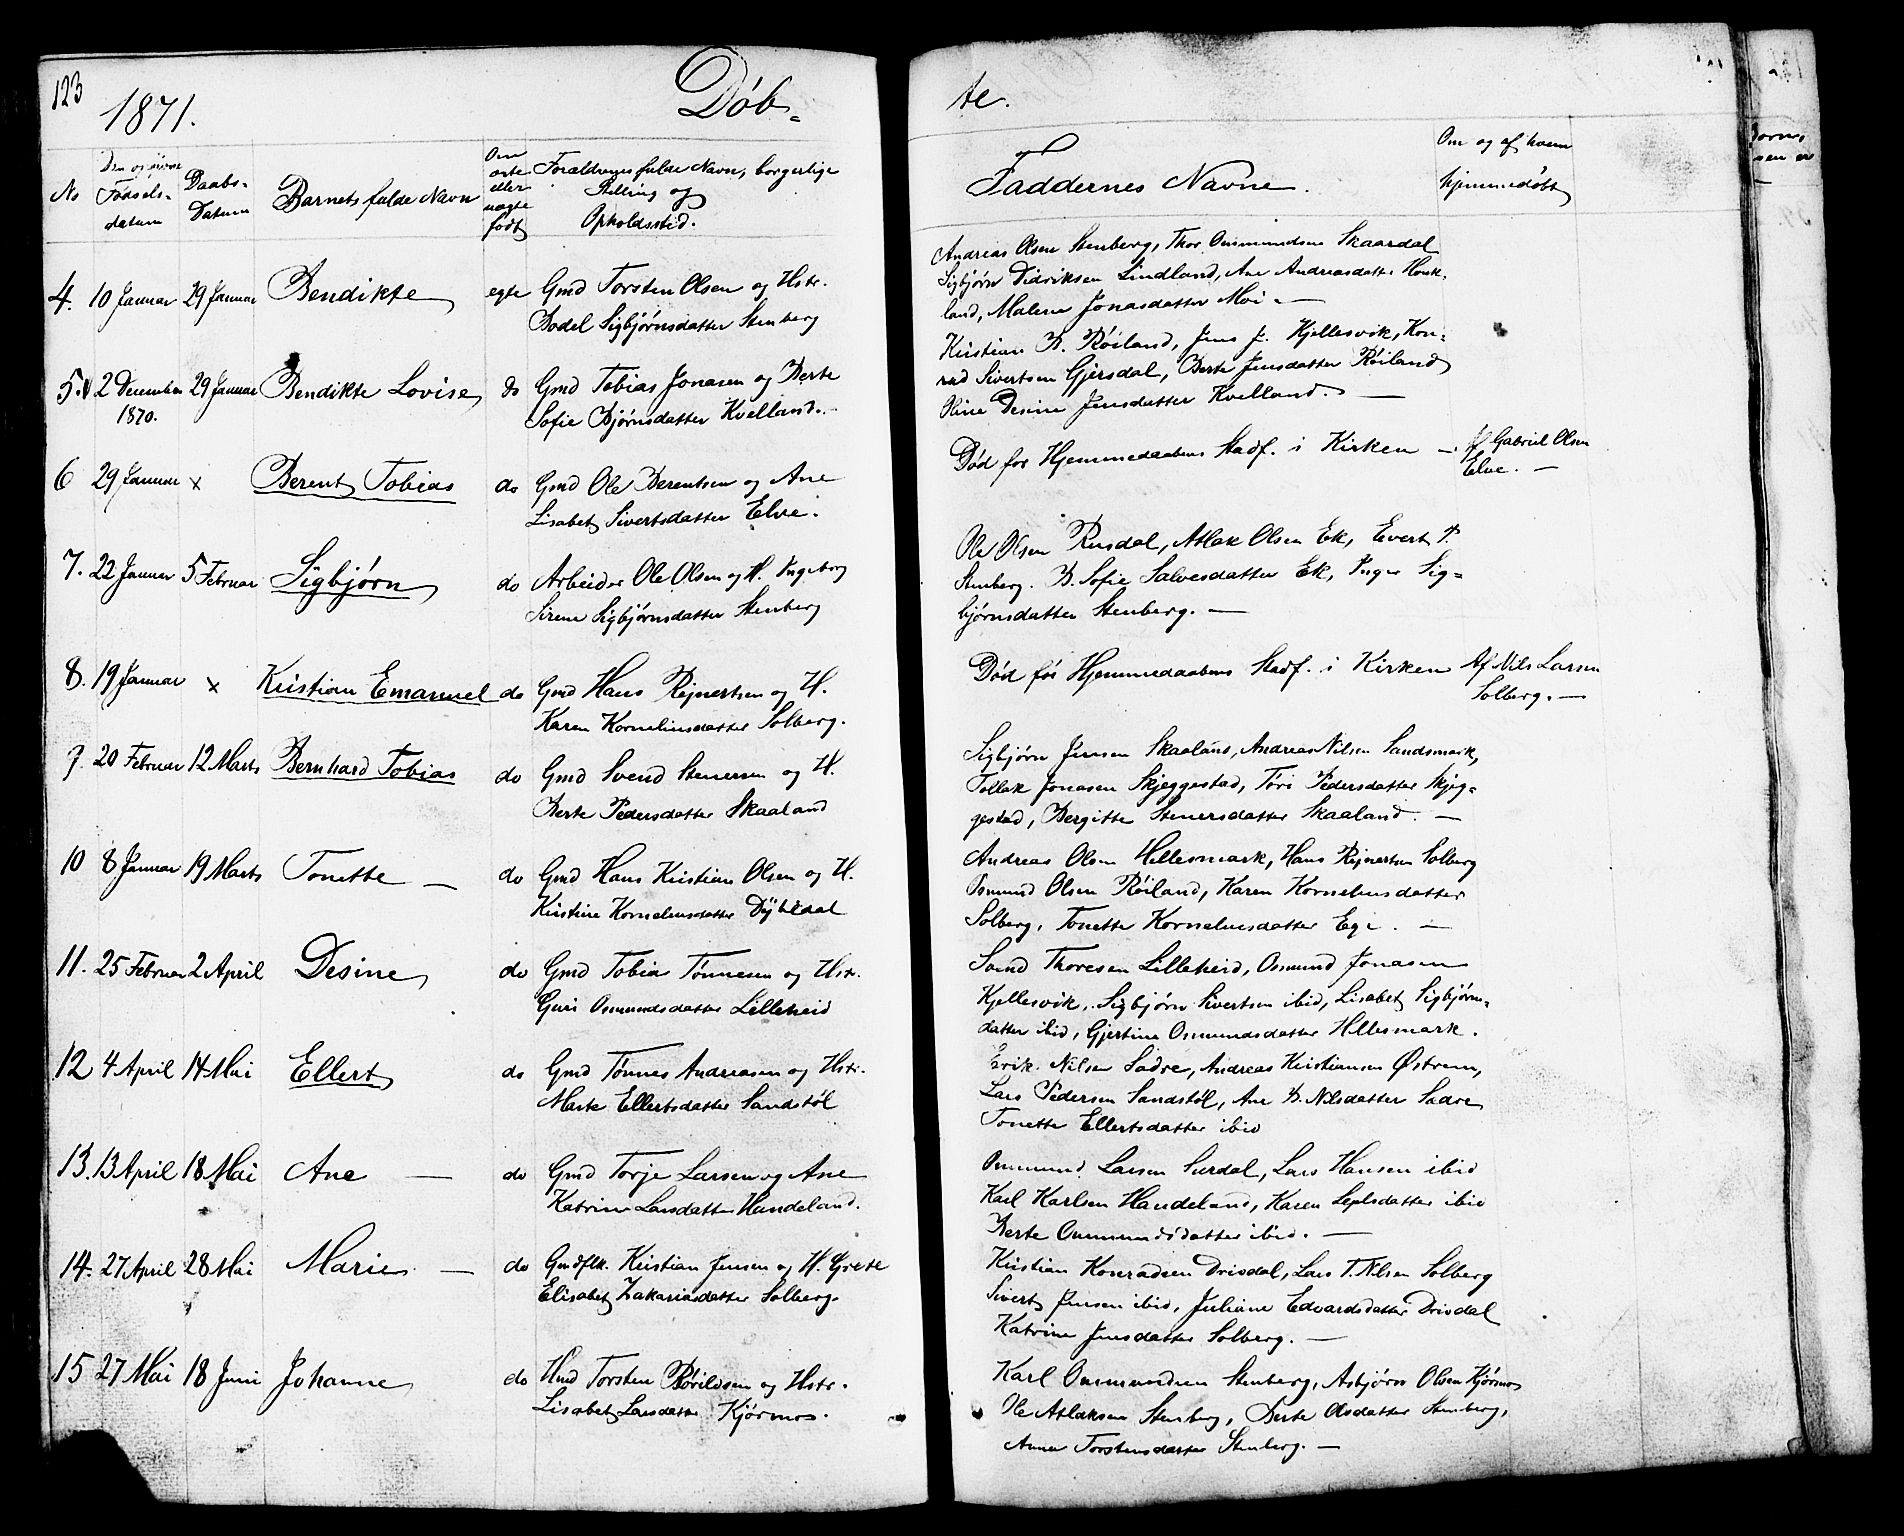 123
1871.
Døb-
te.
No
Den og givne
Fødsels-
datum
Daabs-
Datum
Barnets fulde Navn
Om
ægte
eller
uægte
født
Forældrenes fulde Navn, borgerlige
Stilling og
Opholdssted.
Faddernes Navne.
Om og af hvem
hjemmedøbt
4. 10 Januar 29 Januar Bendikte egte Gmd Torsten Olsen og Hstr.
Bodel Sigbjørnsdatter Stenberg
Andreas Olsen Stenberg, Thor Ommundsen Skaardal
Sigbjørn Didriksen Lindland, Ane Andreasdatter Houk-
land, Malene Jonasdatter Moi. —
5. 2 December 29 Januar Bendikte Lovise do Gmd Tobias Jonasen og Berte
1870.
Sofie Bjørnsdatter Kvelland.
Kristian B. Røiland, Jens J. Kjellesvik, Kon-
rad Sivertsen Gjersdal, Berte Jensdatter Røiland
Oline Desine Jensdatter Kvelland. —
6 29 Januar x Berent Tobias do Gmd Ole Berentsen og Ane
Lisabet Sivertsdatter Elve.
Død før Hjemmedaabens Stadf. i Kirken —
Af Gabriel Olsen
Elve. —
7. 22 Januar 5 Februar Sigbjørn do Arbeider Ole Olsen og H. Ingeborg
Sirene Sigbjørnsdatter Stenberg
Ole Olsen Rusdal, Atlak Olsen Ek, Evert P.
Stenberg. B. Sofie Salvesdatter Ek, Inger Sig-
bjørnsdatter Stenberg. —
8. 19 Januar x Kristian Emanuel do Gmd Hans Rejnertsen og H.
Karen Korneliusdatter Solberg.
Død før Hjemmedaabens Stadf. i Kirken
Af Nils Larsen
Solberg. —
9. 20 Februar 12 Marts Bernhard Tobias do Gmd Svend Stenersen og H.
Berte Pedersdatter Skaaland
Sigbjørn Jensen Skaaland, Andreas Nilsen Sandsmark,
Tollak Jonasen Skjeggestad, Tøri Pedersdatter Skjeg-
gestad, Bergitte Stenersdatter Skaaland. —
10 8 Januar 19 Marts Tonette — do Gmd Hans Kristian Olsen og H.
Kirstine Korneliusdatter Dybedal
Andreas Olsen Hellesmark, Hans Rejnertsen Solberg
Osmund Olsen Røiland, Karen Korneliusdatter
Solberg, Tonette Korneliusdatter Ege. —
11. 25 Februar 2 April Desine do Gmd Tobias Tønnesen og Hstr.
Guri Osmundsdatter Lilleheid
Svend Thoresen Lilleheid, Osmund Jonasen
Kjellesvik, Sigbjørn Sivertsen ibid, Lisabet Sigbjørns-
datter ibid, Gjertine Osmundsdatter Hellesmark.
12 4 April 14 Mai Ellert do Gmd Tønnes Andreasen og Hstr.
Marte Ellertsdatter Sandstøl
Erik Nilsen Sadre, Andreas Kristiansen Østrem,
Lars Pedersen Sandstøl, Ane B. Nilsdatter Sadre
Tonette Ellertsdatter ibid
13. 13 April 18 Mai Ane — do Gmd Torje Larsen og Ane
Katrine Larsdatter Handeland.
Ommund Larsen Surdal, Lars Hansen ibid
Karl Karlsen Handeland, Karen ibid
Berte Ommundsdatter ibid. —
14. 27 April 28 Mai Marie — do Gmdflk. Kristian Jensen og H. Grete
Elisabet Zakariasdatter Solberg.
Kristian Konradsen Drivdal, Lars T. Nilsen Solberg
Sivert Jensen ibid, Juliane Edvardsdatter Drivdal
Katrine Jensdatter Solberg. —
15 27 Mai 18 Juni Johanne do Hmd Torsten og Hstr.
Lisabet Larsdatter Kjørmos.
Karl Ommundsen Stenberg, Asbjørn Olsen Kjørmos
Ole Atlaksen Stenberg, Berte Olsdatter Stenberg,
Anna Torstensdatter Stenberg. —